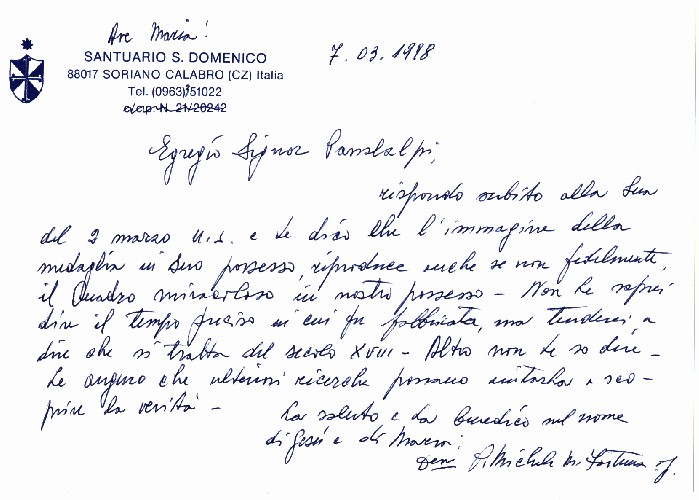 Ave Maria!
SANTUARIO S. DOMENICO
7.03.1998
88017 SORIANO CALABRO (CZ) Italia
Tel. (0963) 351022
c/c/p N. 21/20242
Egregio Signor
rispondo subito alla Sua
del 2 marzo u.s. e Le dico che l'immagine della
medaglia in Suo possesso, riproduce anche se non fedelmente,
il Quadro miracoloso in nostro possesso - Non Le saprei
dire il tempo preciso in cui fu fabbricata, ma tenderei a
dire che si tratta del secolo XVIII - Altro non Le so dire -
Le auguro che ulteriori ricerche possano aiutarla a sco-
prire la verità -
La saluto e La benedico nel nome
di Gesù e di Maria!
P. Michele M. Fortuna